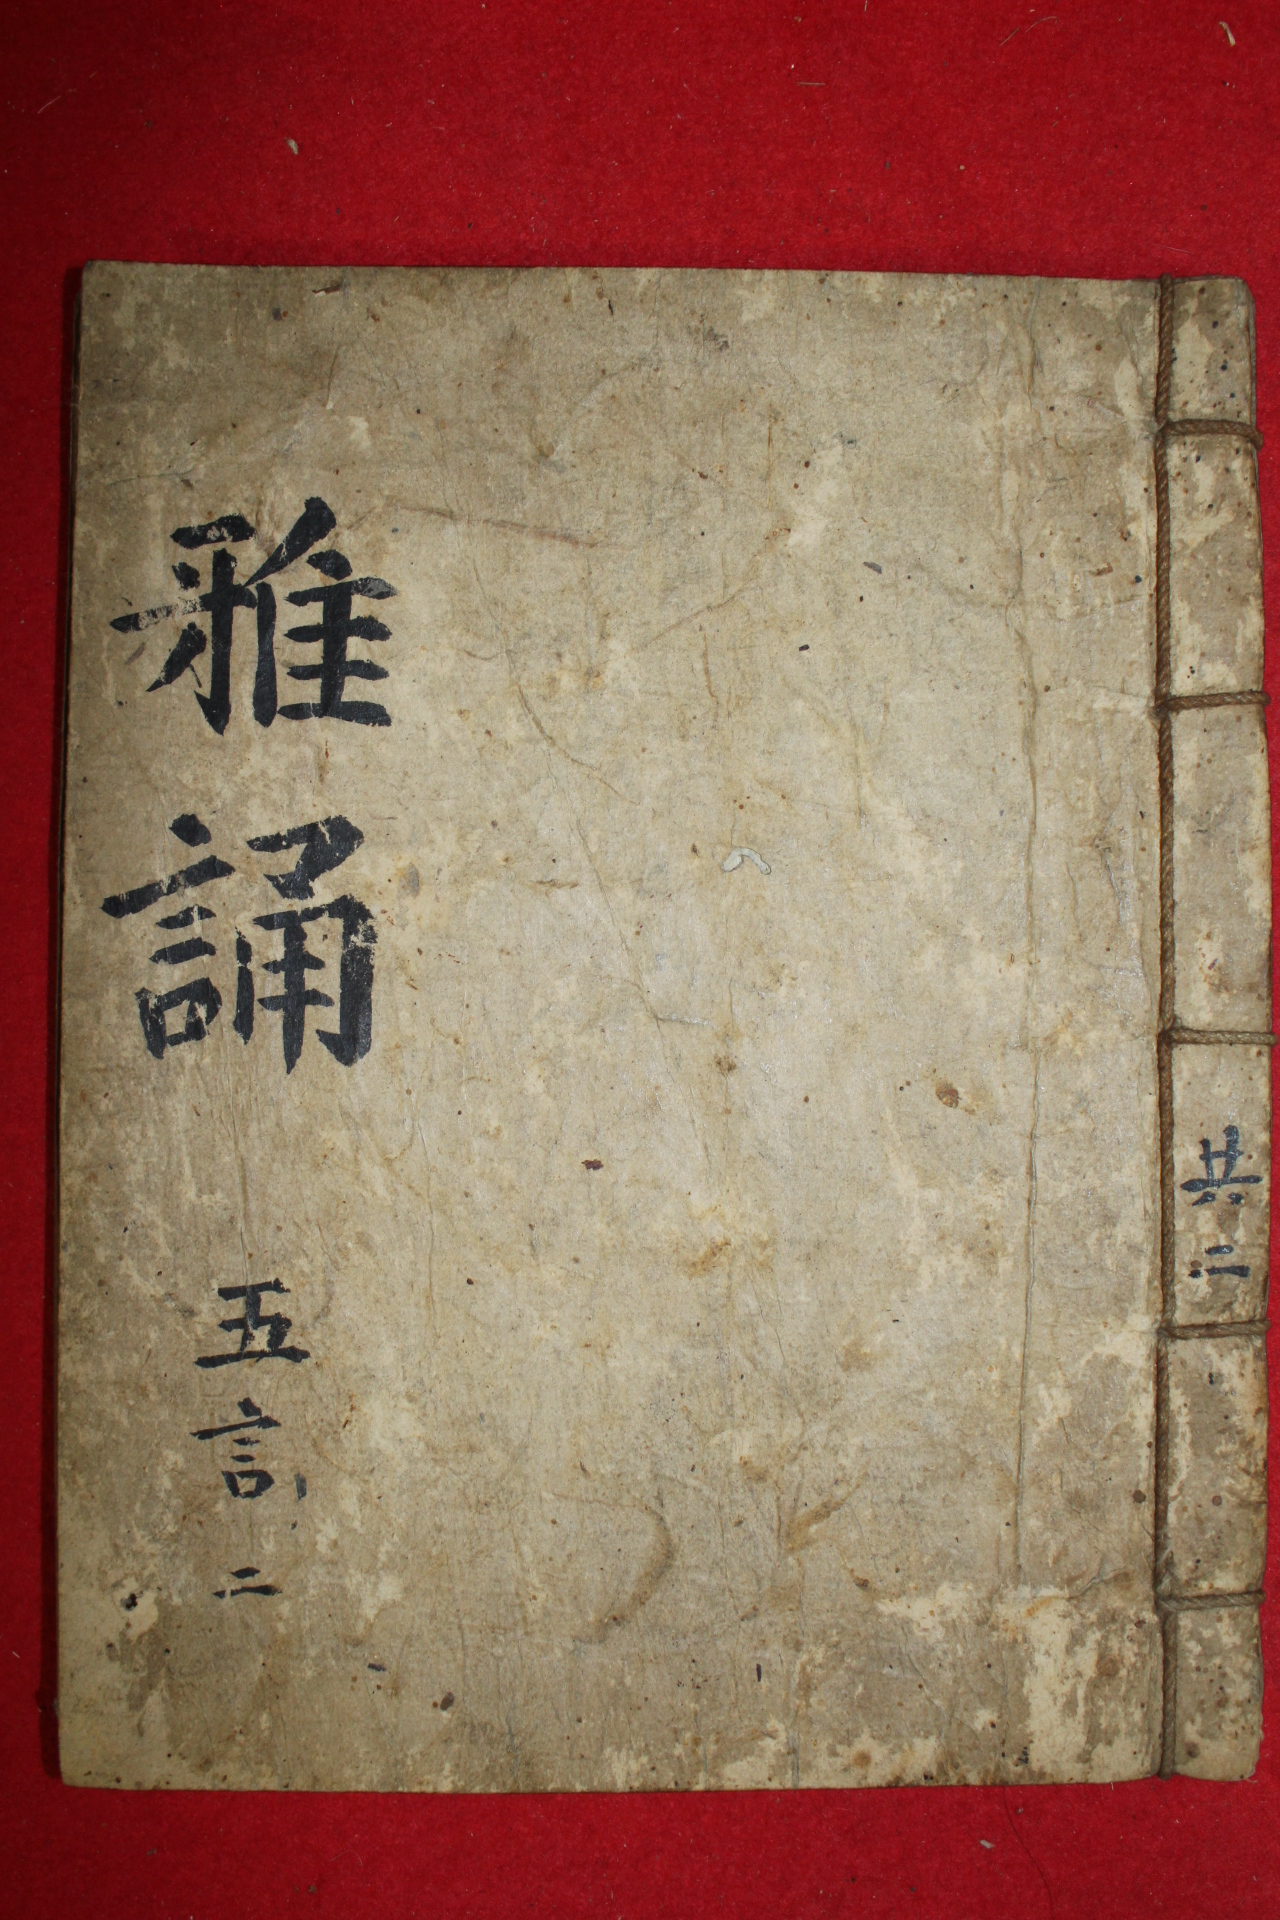 共二
雅誦
五言
二